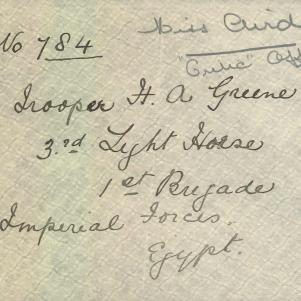 Miss Aird
No 784
"Critic" Off
Trooper H. A Greene
3.rd Light Horse
1st Brigade
Imperial Forces.
Egypt.